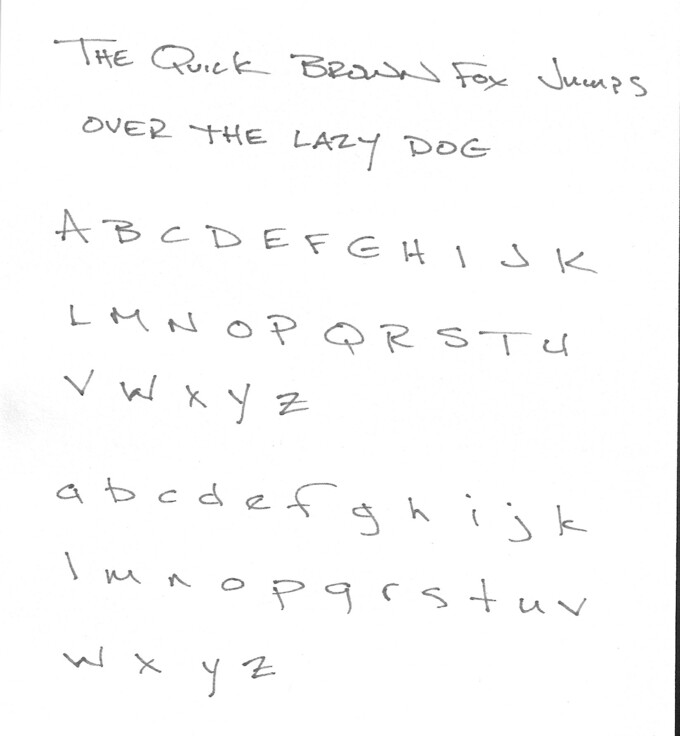 THE QUICK BROWN FOX JUMPS
OVER THE LAZY DOG
A B C D E F G H I J K
L M N O P Q R S T U
V W X Y Z
a b c d e f g h i j k
l m n o p q r s t u v
w x y z